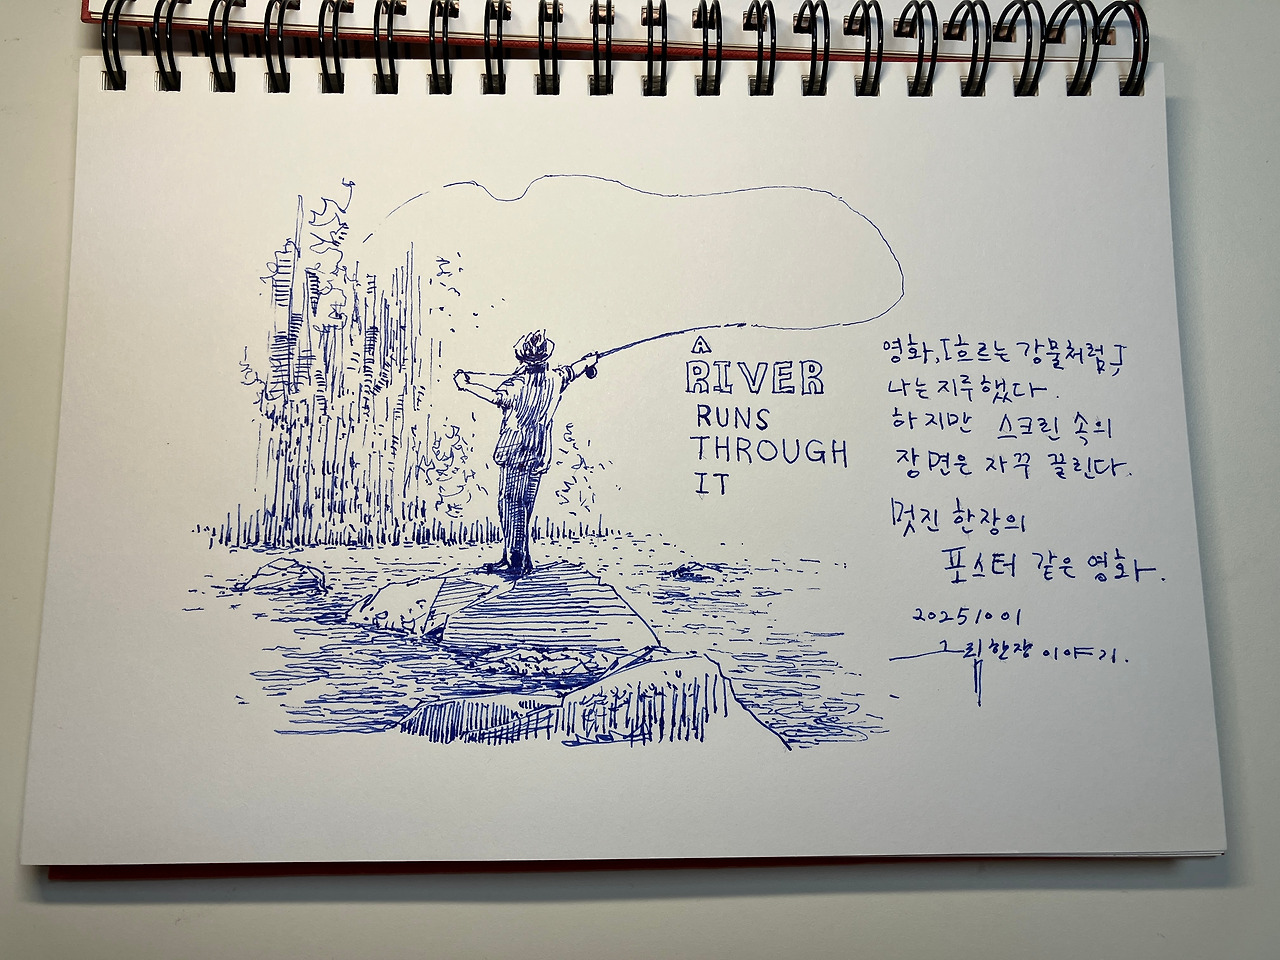 A
RIVER
RUNS
THROUGH
IT
영화,「흐르는 강물처럼」
나는 지루했다.
하지만 스크린 속의
장면은 자꾸 끌린다.
멋진 한장의
포스터 같은 영화.
20251001
그림한장이야기.